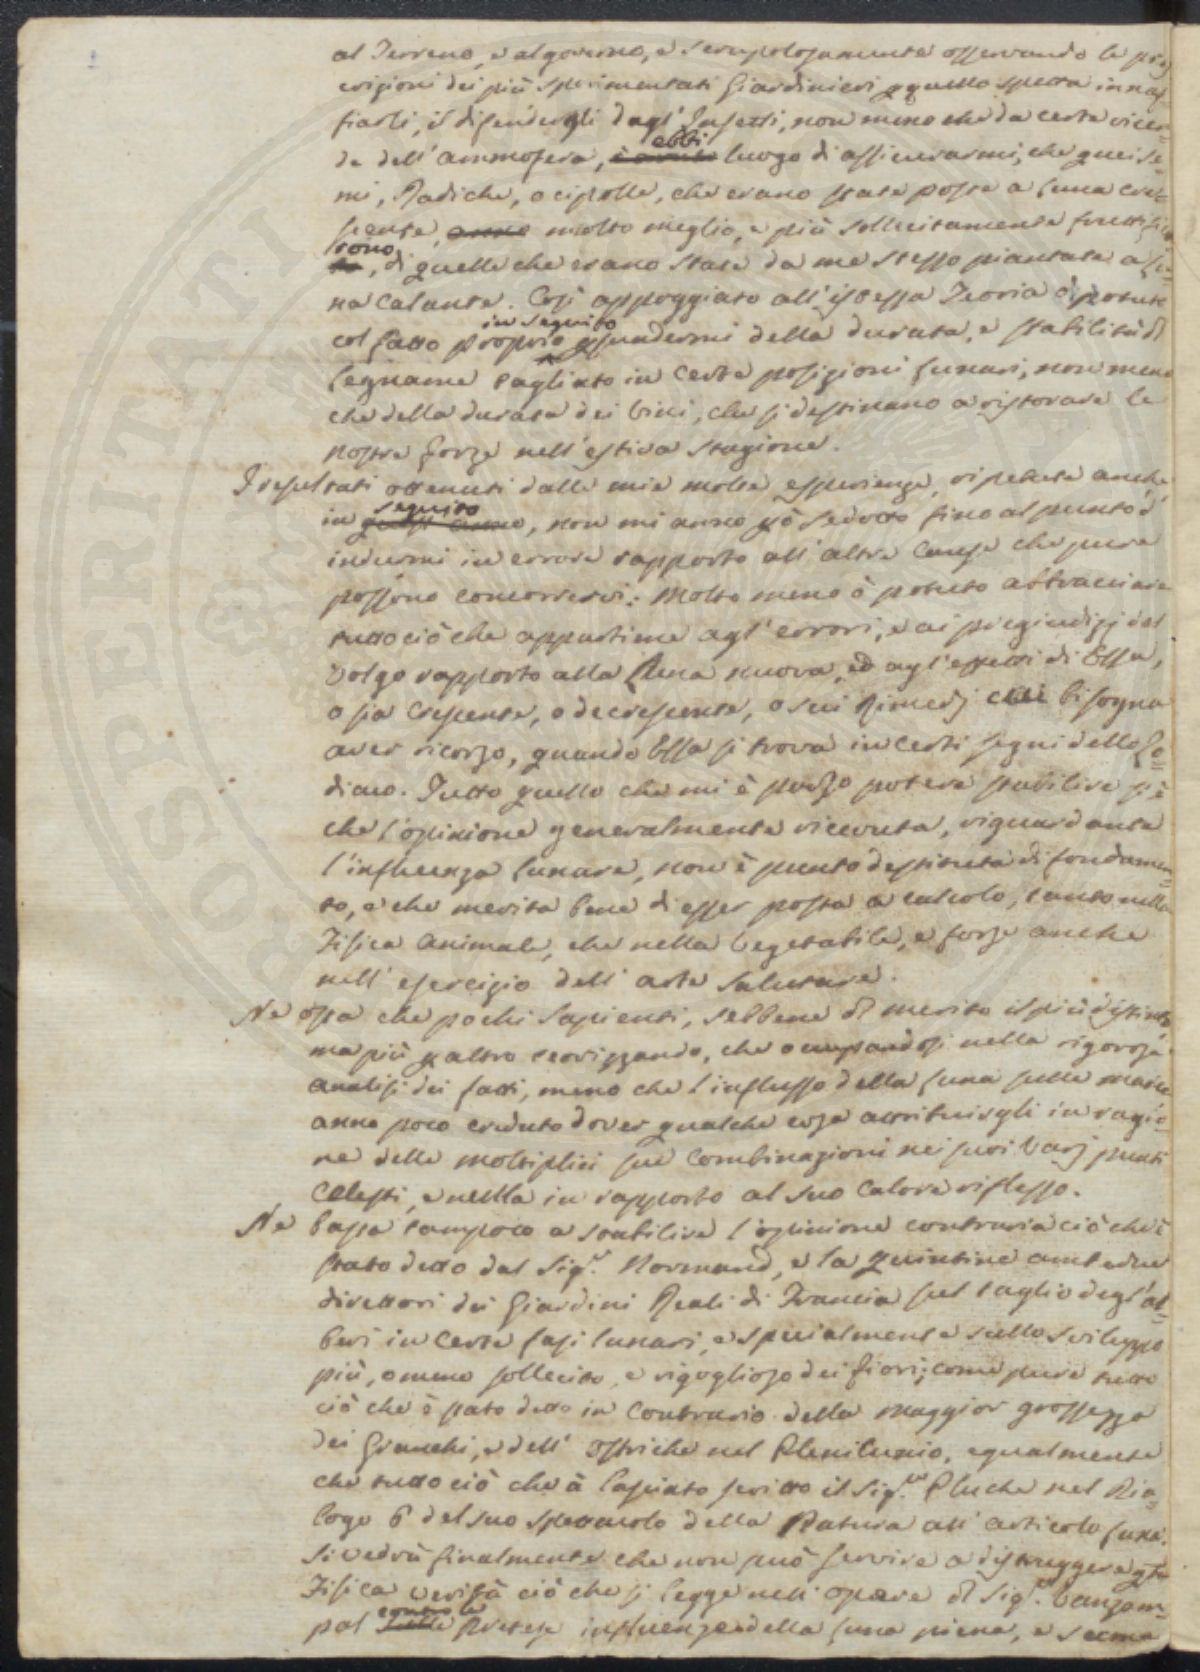 al Terreno, e al governo, e scrupolosamente osservando le pres
crizioni dei più sperimentati Giardinieri p quello spetta innaf
fiarli, il difenderli dagl'Insetti, non meno che da certe vicen=
de dell'ammosfera, ebbi luogo di assicurarmi, che quei se=
mi, Radiche, o cipolle, che erano state poste a luna cre=
scente, molto meglio, e più sollecitamente fruttifica
rono, di quelle che erano state da me stesso piantate a lu=
na calante. Così appoggiato all'istessa Teoria ò potuto
col fatto proprio in seguito psuadermi della durata, e stabilità di
legname tagliato in certe posizioni lunari, non meno
che della durata dei vini, che si destinano a ristorare le
nostre forze nell'estiva stagione.
I resultati ottenuti dalle mie molte esperienze, ripetute anche
in seguito, non mi anno pò sedotto fino al punto d'
indurmi in errore rapporto all'altre cause che pure
possono concorrervi: Molto meno ò potuto abbracciare
tutto ciò che appartiene agl'errori, e ai pregiudizj del
volgo rapporto alla Luna nuova, ed agl'effetti di Essa,
o sia Crescente, o decrescente, o sui Rimedj cui bisogna
aver ricorso, quando Essa si trova in certi segni dello Zo=
diaco. Tutto quello che mi è parso potere stabilire si è
che l'opinione generalmente ricevuta, riguardante
l'influenza lunare, non è punto destituta di fondamen=
to, e che merita bene di esser posta a calcolo, tanto nella
Fisica animale, che nella Vegetabile, e forse anche
nell'esercizio dell'arte salutare.
Ne osta che pochi Sapienti, sebbene di merito il più distinto,
ma più p altro teorizzando, che occupandosi nella rigorosa
analisi dei fatti, meno che l'influsso della luna sulle maree
anno poco creduto dover qualche cosa attribuirgli in ragio=
ne delle moltiplici sue combinazioni nei suoi varj punti
Celesti, e nulla in rapporto al suo calore riflesso.
Ne basta tampoco a stabilire l'opinione contraria ciò che è
stato detto dal Sig.r Normand, e la Quintine ambedue
direttori dei Giardini Reali di Francia sul taglio degl'al=
beri in certe fasi lunari, e specialmente sullo sviluppo
più, o meno sollecito, e rigoglioso dei fiori; come pure tutto
ciò che è stato detto in contrario della maggior grossezza
dei Granchi, e dell'Ostriche nel Plenilunio, egualmente
che tutto ciò che à lasciato scritto il Sig.r Pluche nel Dia=
logo 6 del suo spettacolo della Natura all'articolo luna.
Si vedrà finalmente che non può servire a distruggere qta
Fisica verità ciò che si legge nell'opere di Sig.r Vanzam=
pal contro le pretese influenze della luna piena, e scema